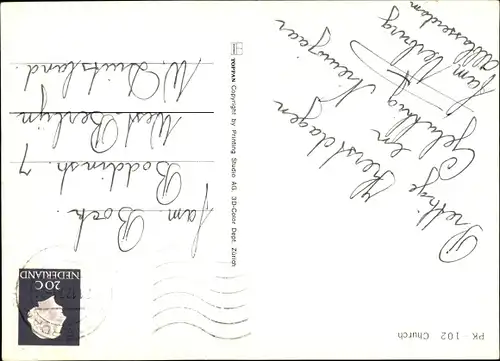 PK - 102 Church
Prettige
Kerstdagen
en
Gelukkig Nieuwjaar
fam Verburg
Alblasserdam
TOPPAN Copyright by Printing Studio AG. 3D-Color Dept. Zürich
NEDERLAND
20 C
fam Bock.
Boddinstr. 7
West Berlijn
W. Duitsland.